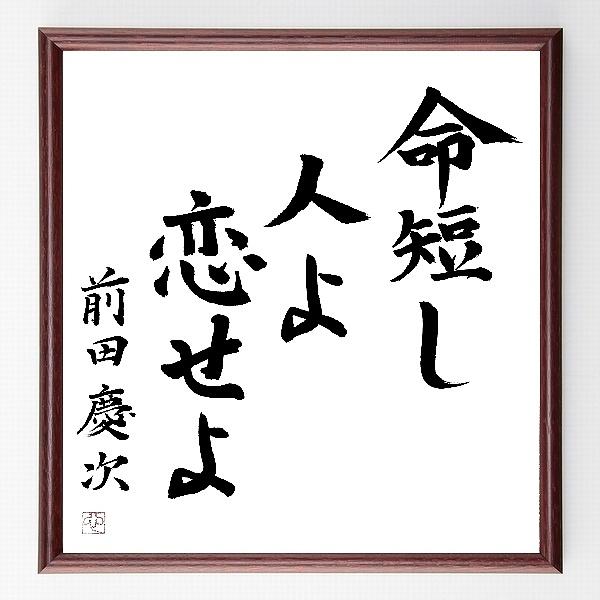 命短し
人よ
恋せよ
前田慶次